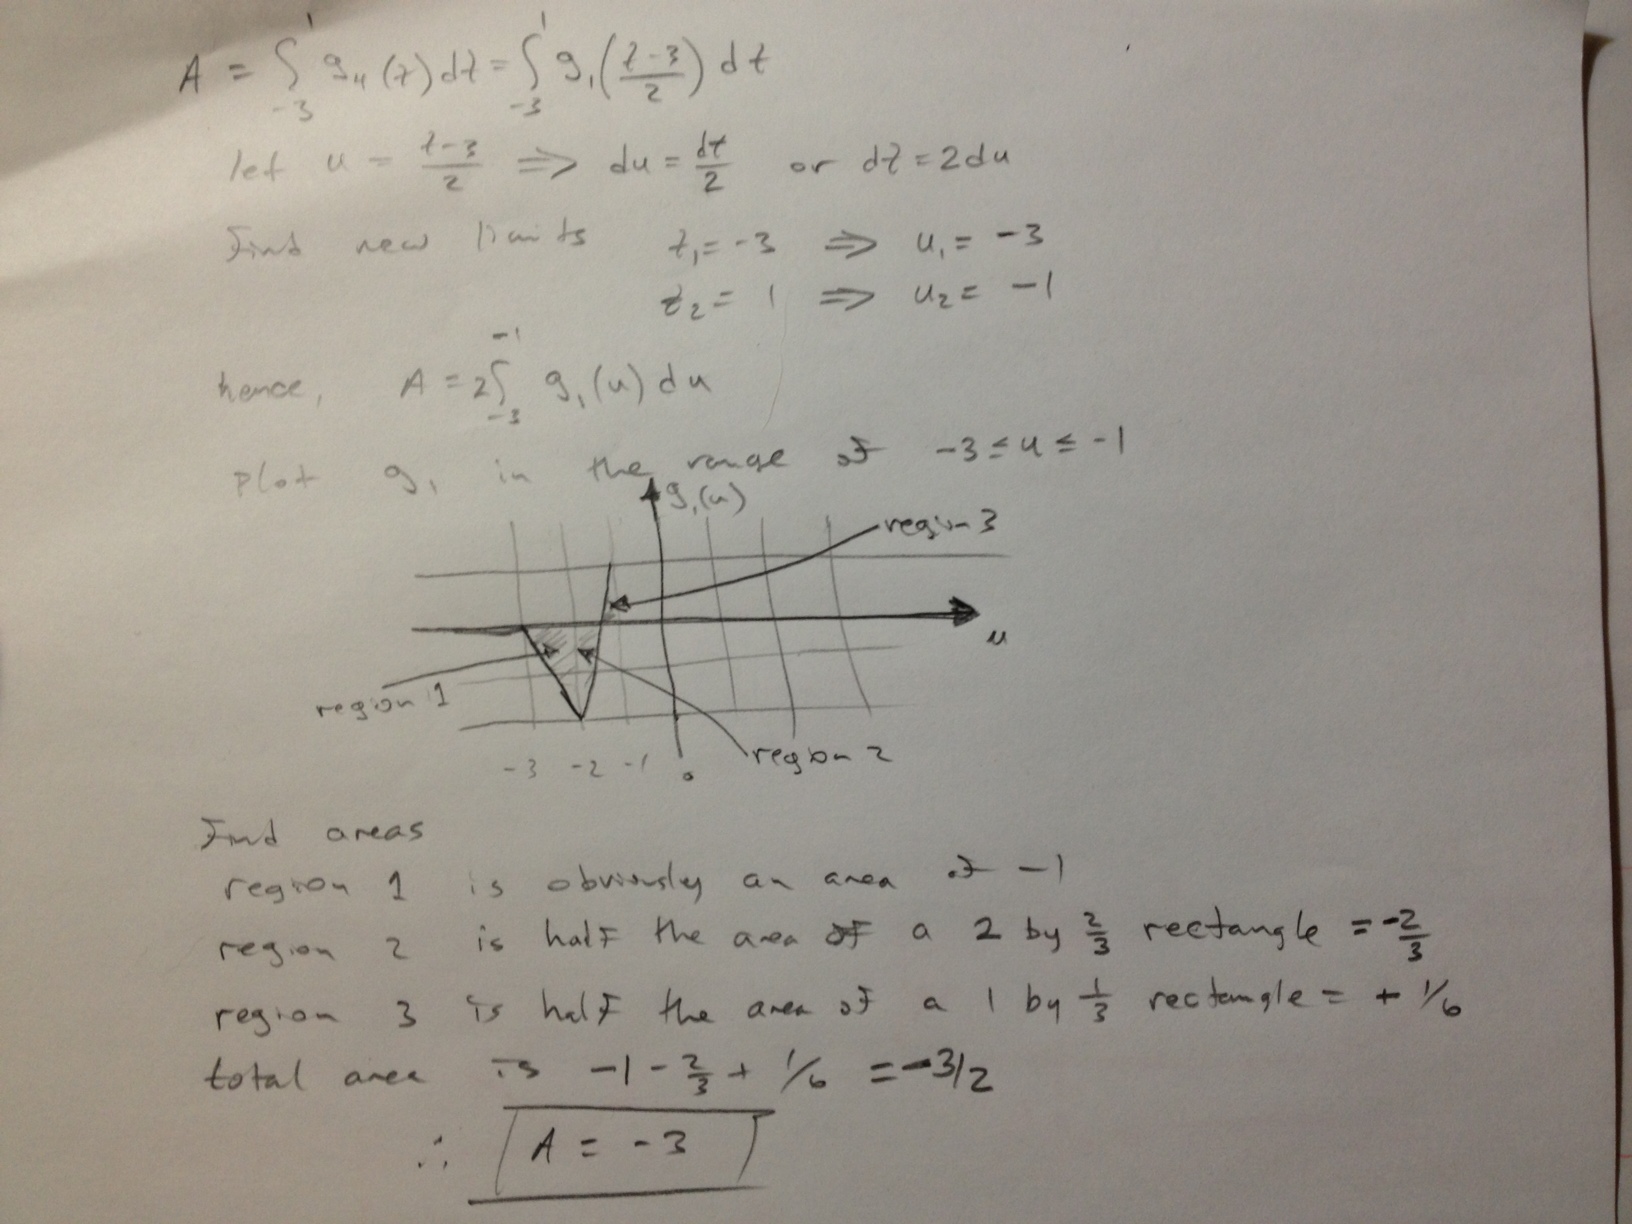 A = ∫₋₃¹ g₄(t)dt = ∫₋₃¹ g₁((t-3)/2) dt
let u = (t-3)/2 ⇒ du = dt/2 or dt = 2du
Find new limits t₁ = -3 ⇒ u₁ = -3
t₂ = 1 ⇒ u₂ = -1
hence, A = 2∫₋₃⁻¹ g₁(u) du
plot g₁ in the range of -3 ≤ u ≤ -1
g₁(u)
region 3
u
region 1
region 2
-3 -2 -1 0
Find areas
region 1 is obviously an area of -1
region 2 is half the area of a 2 by 2/3 rectangle = -2/3
region 3 is half the area of a 1 by 1/3 rectangle = + 1/6
total area is -1 - 2/3 + 1/6 = -3/2
∴ A = -3